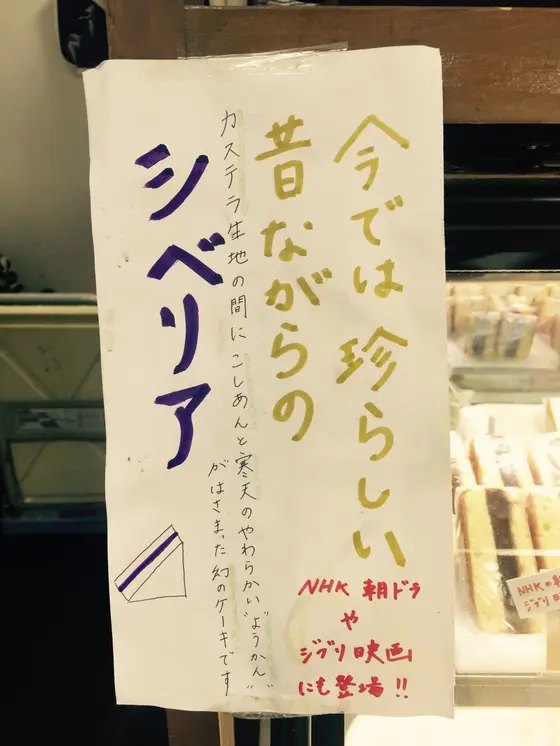 今では珍らしい
昔ながらの
カステラ生地の間にこしあんと寒天のやわらかい"ようかん"
がはさまった幻のケーキです
シベリア
NHK 朝ドラ
や
ジブリ映画
にも登場!!
NHKの
ジブリ